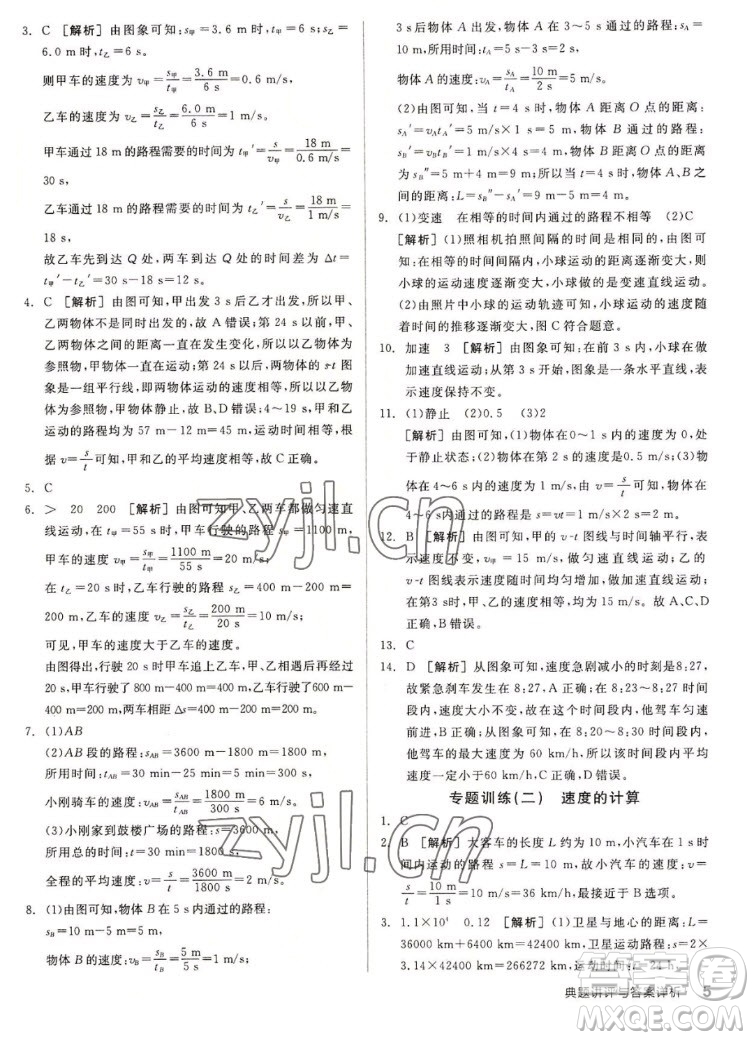 3. C [解析] 由图象可知:s甲=3.6 m,t甲=6 s;s乙=
6.0 m时,t乙=6 s,
则甲车的速度为 v甲=s甲/t甲=3.6 m/6 s=0.6 m/s,
乙车的速度为 v乙=s乙/t乙=6.0 m/6 s=1 m/s,
甲车通过 18 m 的路程需要的时间为 t甲′=s/v甲=18 m/0.6 m/s=
30 s,
乙车通过 18 m 的路程需要的时间为 t乙′=s/v乙=18 m/1 m/s=
18 s,
故乙车先到达 Q 处,两车到达 Q 处的时间差为 Δt=
t甲′-t乙′=30 s-18 s=12 s。
4. C [解析] 由图可知,甲出发 3 s后乙才出发,所以甲、
乙两物体不是同时出发的,故 A 错误;第 24 s 以前,甲
物体一直在运动,乙物体在第 4 s 开始运动,两者间的
距离一直在发生变化,所以以甲为参照物,第 24 s 以
前乙物体是运动的;第 24 s 以后,甲、乙两物体的 s-t 图
象是一组平行线,即两物体运动的速度相等,所以以甲
为参照物,乙物体静止,故 B、D 错误;4~19 s,甲和乙
运动的路程均为 57 m-12 m=45 m,运动的时间相
同,根据 v=s/t可知,甲、乙的平均速度相等,故 C 正确。
5. C
6. > 20 200 [解析] 由图可知甲、乙两车都做匀速直
线运动,在 t甲=55 s 时,甲车行驶的路程 s甲=1100 m,
甲车的速度为 v甲=s甲/t甲=1100 m/55 s=20 m/s,
在 t乙=20 s时,乙车行驶的路程 s乙=400 m-200 m=
200 m,乙车的速度 v乙=s乙/t乙=200 m/20 s=10 m/s;
可见,甲车的速度大于乙车的速度。
由图得出,行驶 20 s时甲车追上乙车,当行驶到 40 s时,
甲车行驶了 800 m-400 m=400 m,乙车行驶了600 m-
400 m=200 m,两车相距 Δs=400 m-200 m=200 m。
7. (1)AB
(2)AB段的路程:sAB=3600 m-1800 m=1800 m,
所用时间:tAB=30 min-25 min=5 min=300 s,
小刚骑车的速度:v=sAB/tAB=1800/300 m/s=6 m/s。
(3)小刚家到鼓楼广场的路程:s=3600 m,
所用总的时间:t=30 min=1800 s,
全程的平均速度:v=s/t=3600 m/1800 s=2 m/s。
8. (1)由图可知,物体 B 在 5 s内通过的路程:
sB=10 m-5 m=5 m,
物体 B 的速度:vB=sB/tB=5 m/5 s=1 m/s。
3 s后物体 A 出发,A 物体 5 s 时通过的路程:sA=
10 m,所用时间:tA=5 s-3 s=2 s,
物体 A 的速度:vA=sA/tA=10 m/2 s=5 m/s。
(2)由图可知,当 t=4 s 时,物体 A 距离 O 点的距离:
sA′=vAtA′=5 m/s×1 s=5 m;物体 B 通过的路程:
sB′=vBtB′=1 m/s×4 s=4 m,所以物体 B 距离 O 点
的距离:sB″=4 m+5 m=9 m;所以此时物体 A、B 之
间的距离:L=sB″-sA′=9 m-5 m=4 m。
9. (1)变速 在相等的时间内通过的路程不相等 (2)C
[解析] (1)照相机拍照间隔的时间相等,由图可知,
在相等的时间间隔内,小球运动的距离逐渐变大,小
球的速度逐渐变大,小球的运动是变速直线运动。
(2)由照片中小球的运动轨迹可知,小球的速度随着
时间的推移逐渐变大,图 C符合题意。
10. 加速 3 [解析] 由图象可知,在前 3 s 内,小球在做
加速直线运动。从第 3 s 开始,图象是一条水平直线,表
示速度保持不变。
11. (1)静止 (2)0.5 (3)2
[解析] 由图可知:(1)物体在0~1 s内的速度为0,
处于静止状态;(2)物体在第 2 s 的速度是 0.5 m/s;
(3)物体在4~6 s内的速度是1 m/s,由 v=s/t可知,物体在
4~6 s内通过的路程 s=vt=1 m/s×2 s=2 m。
12. B [解析] 由图可知,甲的 v-t 图线与时间轴平行,表
示速度不变,v甲=15 m/s,做匀速直线运动;乙的
v-t 图线表示速度随时间均匀增加,做加速直线运动;
在第3 s时,v乙=15 m/s,所以 B 正确,A、C、D
错误。
13. C
14. D [解析] 从图象可知,速度急剧减小的时刻是8:27,
故紧急刹车在 8:27,A 正确;在 8:23~8:27 时间
段内,速度不变,由图知他驾车以 60 km/h 匀速
前进,B、C 正确;在 8:20~8:30 时间段内,
他驾车的最大速度为 60 km/h,所以该时间段内平均
速度一定小于 60 km/h,D 错误。
专题训练(二) 速度的计算
1. C
2. B [解析] 大客车的长度约为 10 m,小汽车在 1 s时
间内运动的路程约为 10 m,故小汽车运动的速度
v=s/t=10 m/1 s=10 m/s=36 km/h,最接近 40 km/h。
3. 1.1×10⁴ 0.12 [解析] (1)卫星与地心的距离:L=
36000 km+6400 km=42400 km,卫星运动路程:s=2×
3.14×42400 km=266272 km,运动时间:t=24 h,
典题讲评与答案详析 5
zyjl.cn
zyjl.cn
答案圈
MXQE.COM